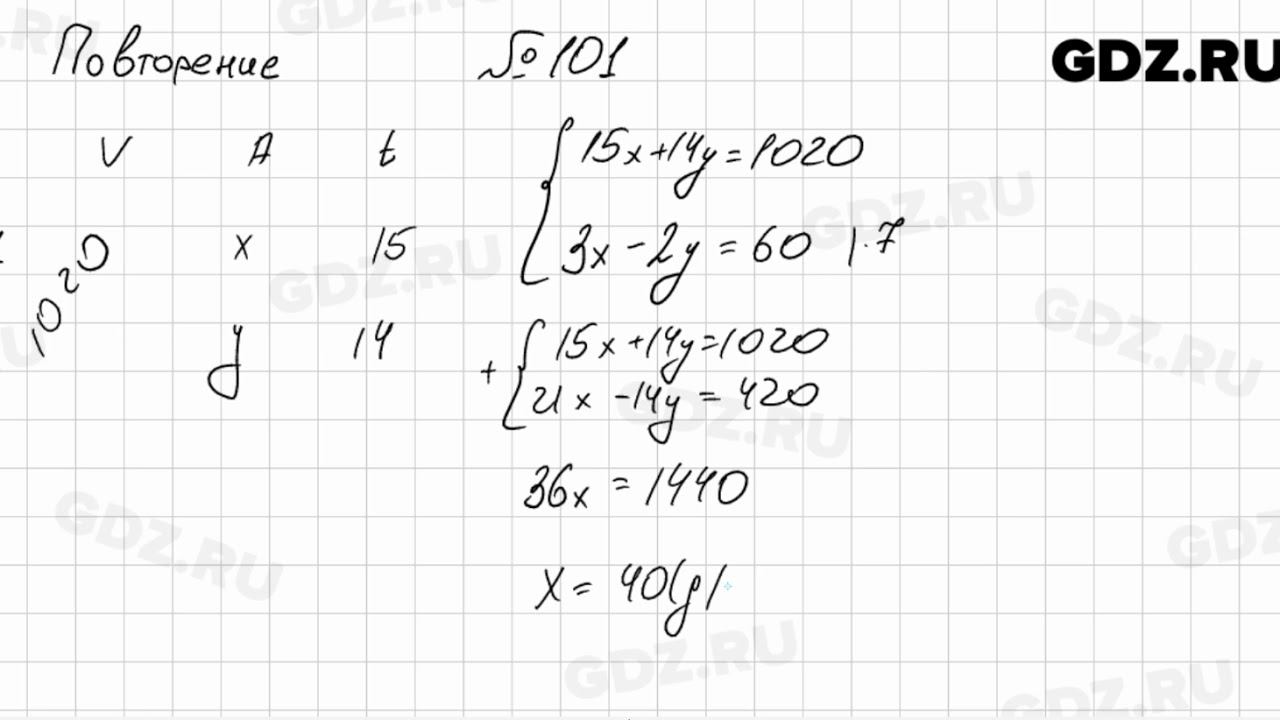 Повторение № 101
GDZ.RU
V A t
1020
x 15
y 14
15x+14y=1020
3x-2y=60 |·7
+ 15x+14y=1020
21x-14y=420
36x=1440
x=40(g)